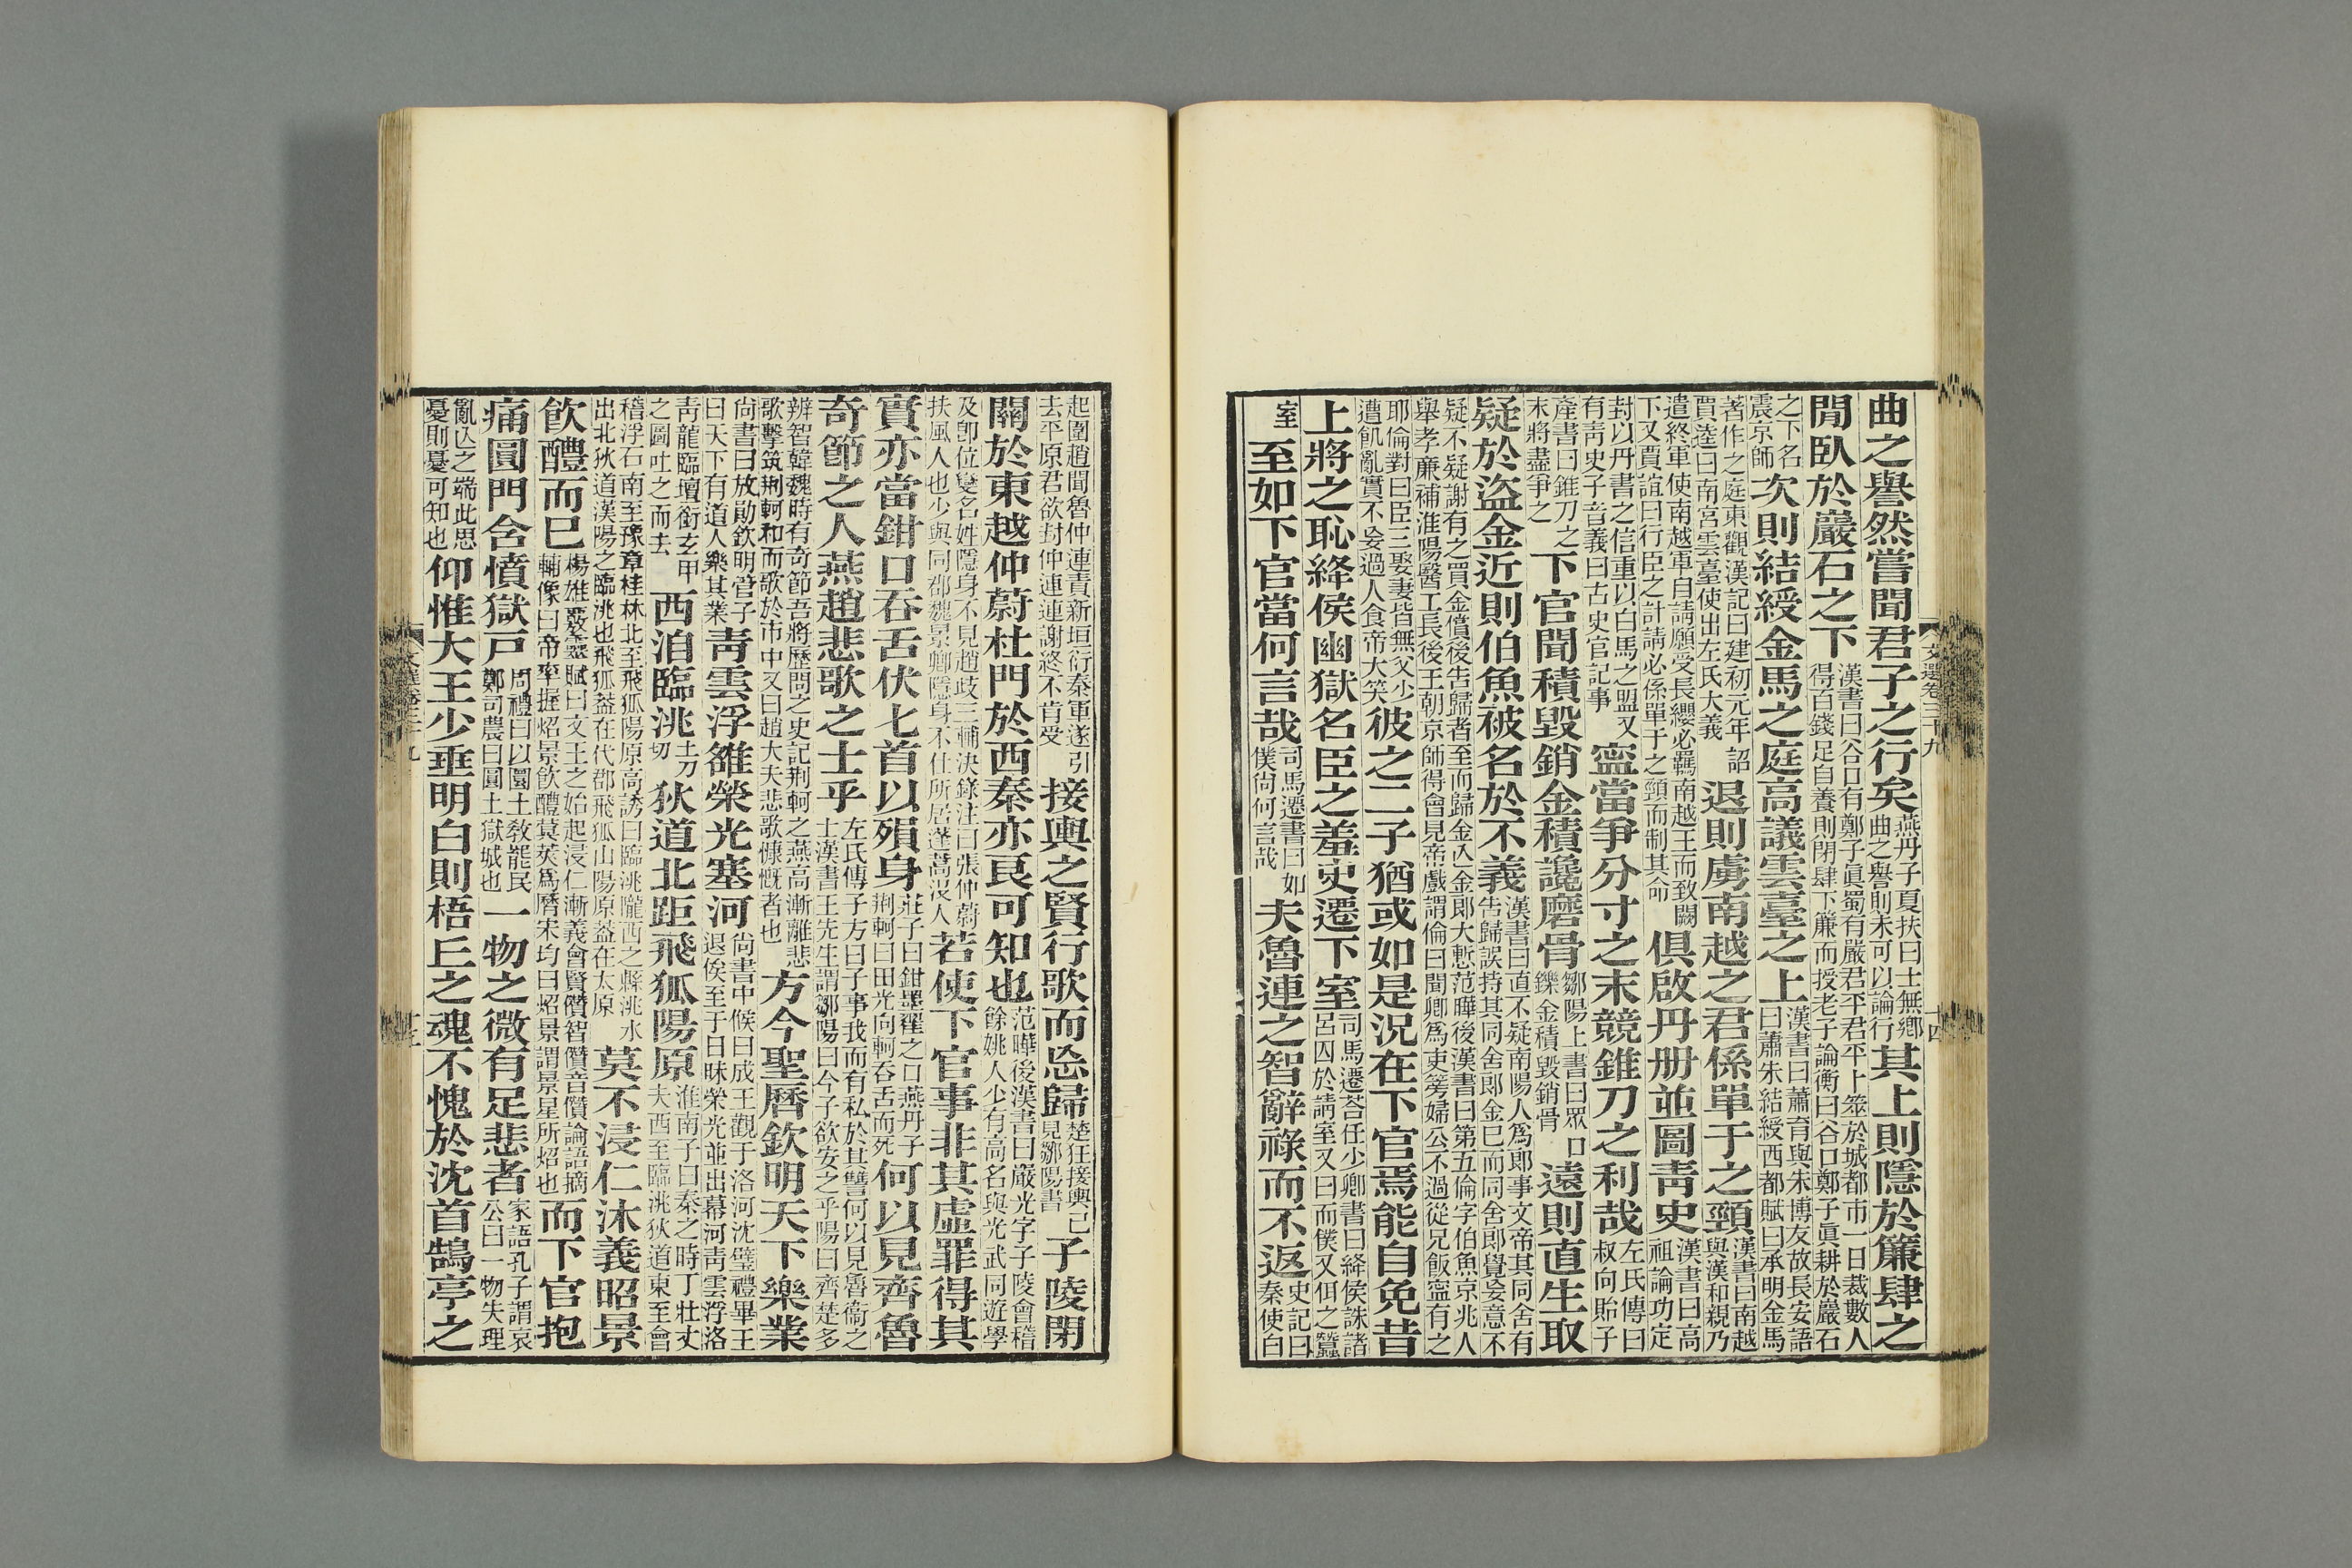 曲之譽然嘗聞君子之行矣燕丹子夏扶曰士無鄉曲之譽則未可以論行其上則隱於簾肆之
閒臥於巖石之下漢書曰谷口有鄭子眞蜀有嚴君平君平卜筮於城都市一日裁數人得百錢足自養則閉肆下簾而授老子論衡曰谷口鄭子眞耕於巖石
之下名震京師次則結綬金馬之庭高議雲臺之上漢書曰蕭育與朱博友故長安語曰蕭朱結綬西都賦曰承明金馬
著作之庭東觀漢記曰建初元年詔賈逵曰南宮雲臺使出左氏大義退則虜南越之君係單于之頸漢書曰南越與漢和親乃
遣終軍使南越軍自請願受長纓必羈南越王而致闕下又賈誼曰行臣之計請必係單于之頸而制其命俱啟丹册並圖靑史漢書曰高祖論功定
封以丹書之信重以白馬之盟又有靑史子音義曰古史官記事寧當爭分寸之末競錐刀之利哉左氏傳曰叔向貽子
產書曰錐刀之末將盡爭之下官聞積毀銷金積讒磨骨鄒陽上書曰眾口鑠金積毀銷骨遠則直生取
疑於盜金近則伯魚被名於不義漢書曰直不疑南陽人爲郎事文帝其同舍有告歸誤持其同舍郎金已而同舍郎覺妄意不
疑不疑謝有之買金償後告歸者至而歸金亾金郎大慙范曄後漢書曰第五倫字伯魚京兆人舉孝廉補淮陽醫工長後王朝京師得會見帝戲謂倫曰聞卿爲吏篣婦公不過從兄飯寧有之
耶倫對曰臣三娶妻皆無父少遭飢亂實不妄過人食帝大笑彼之二子猶或如是況在下官焉能自免昔
上將之恥絳侯幽獄名臣之羞史遷下室司馬遷荅任少卿書曰絳侯誅諸呂囚於請室又曰而僕又佴之蠶
室至如下官當何言哉司馬遷書曰如僕尙何言哉夫魯連之智辭祿而不返史記曰秦使白
文選卷三十九
十四
起圍趙聞魯仲連責新垣衍秦軍遂引去平原君欲封仲連連謝終不肯受接輿之賢行歌而忘歸楚狂接輿已見鄒陽書子陵閉
關於東越仲蔚杜門於西秦亦良可知也范曄後漢書曰嚴光字子陵會稽餘姚人少有高名與光武同遊學
及卽位變名姓隱身不見趙歧三輔決錄注曰張仲蔚扶風人也少與同郡魏景卿隱身不仕所居蓬蒿沒人若使下官事非其虛罪得其
實亦當鉗口吞舌伏匕首以殞身莊子曰鉗墨翟之口燕丹子荆軻曰田光向軻吞舌而死何以見齊魯
奇節之人燕趙悲歌之士乎左氏傳子方曰子事我而有私於其讐何以見魯衞之士漢書王先生謂鄒陽曰今子欲安之乎陽曰齊楚多
辨智韓魏時有奇節吾將歷問之史記荆軻之燕高漸離悲歌擊筑荆軻和而歌於市中又曰趙大夫悲歌慷慨者也方今聖曆欽明天下樂業
尙書曰放勛欽明管子曰天下有道人樂其業靑雲浮雒榮光塞河尙書中候曰成王觀于洛河沈璧禮畢王退俟至于日昧榮光並出幕河靑雲浮洛
靑龍臨壇銜玄甲之圖吐之而去西洎臨洮土刀切狄道北距飛狐陽原淮南子曰秦之時丁壯丈夫西至臨洮狄道東至會
稽浮石南至豫章桂林北至飛狐陽原高誘曰臨洮隴西之縣洮水出北狄道漢陽之臨洮也飛狐葢在代郡飛狐山陽原葢在太原莫不浸仁沐義昭景
飮醴而已楊雄覈靈賦曰文王之始起浸仁漸義會賢儹智儹音儹論語摘輔像曰帝率握炤景飮醴蓂莢爲曆宋均曰炤景謂景星所炤也而下官抱
痛圓門含憤獄戶周禮曰以圜土敎罷民鄭司農曰圓土獄城也一物之微有足悲者家語孔子謂哀公曰一物失理
亂亾之端此思憂則憂可知也仰惟大王少垂明白則梧丘之魂不愧於沈首鵠亭之
文選卷三十九